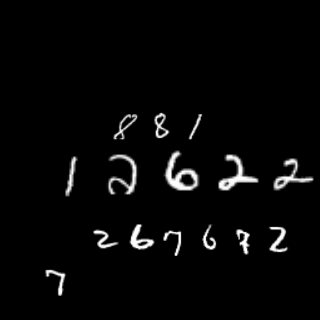 881
12622
267672
7